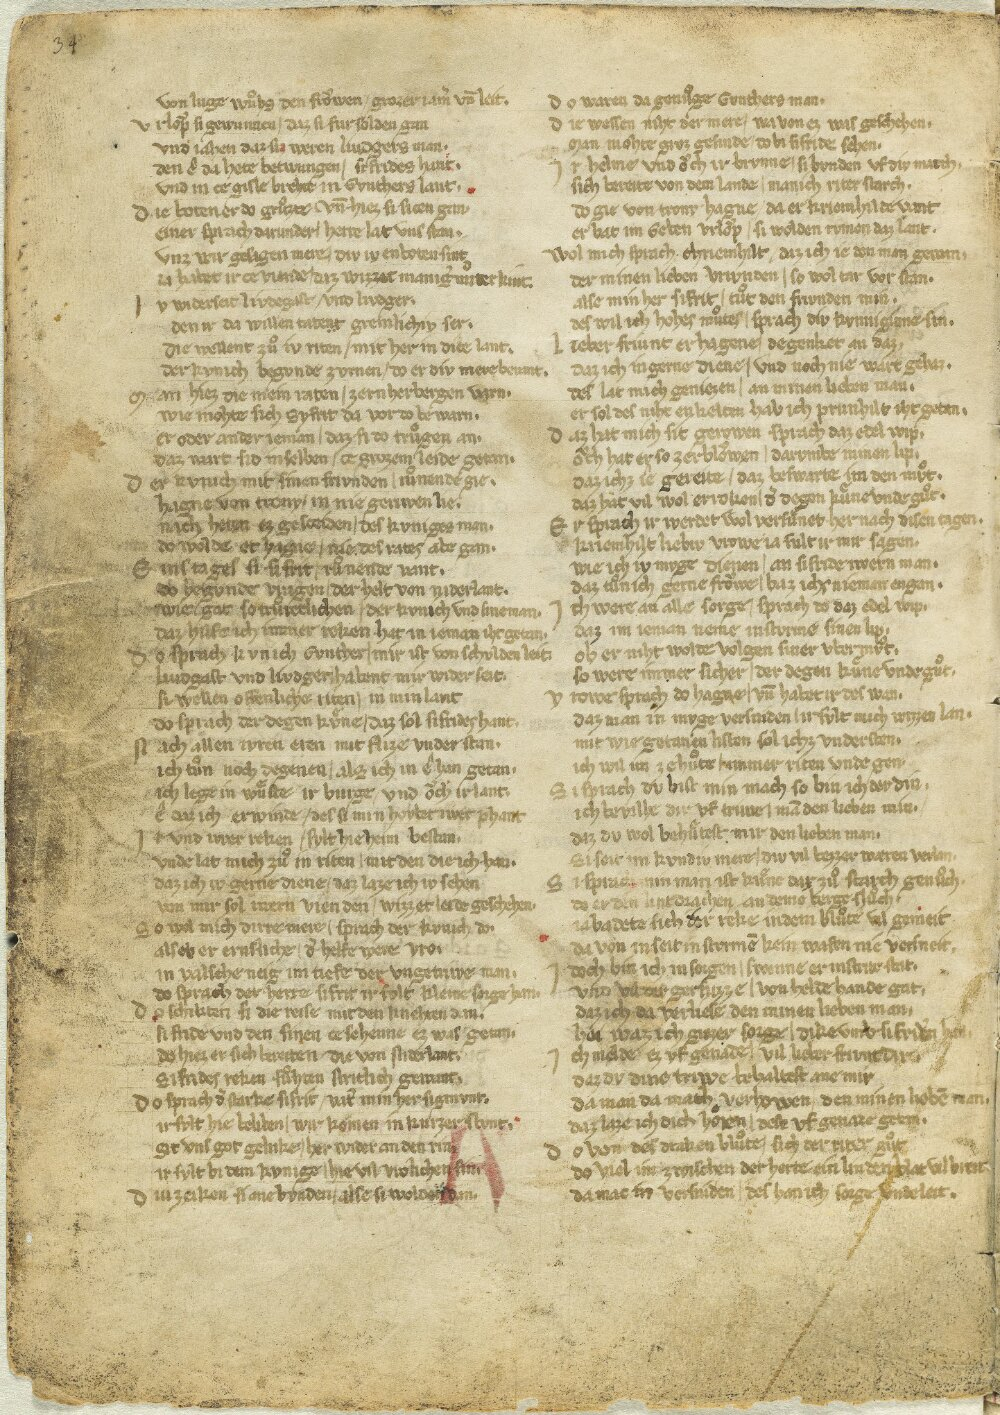 34
von luge wuͦhs den froͮwen / grozer iam̄ vn̄ leit.
Vrloͮp si gewunnen / daz si fur solden gan
vnd iahen daz siz weren liudgers man.
den ê da hete betwungen / sifrides hant.
vnd in ce gisle breht in Gvnthers lant.
Die boten er do gruͦzte vn̄ hiez si sicen gan
einer sprach darunder / herre lat vns stan.
vnz wir gesagen mere / div iv enboten sint
ia habet ir ce viande / daz wizzet manig muͦter kint.
Iv widersat livdegast / vnd livdger.
den ir da willen tatent gremlichiv ser.
die wellent zuͦ iv riten / mit her in dice lant.
der kvnich begvnde zvrnen / do er div mere bevant.
Man hiez die mein raten / zen herbergen varn.
wie mohte sich Syfrit da vor do bewarn.
er oder ander ieman / daz si do truͦgen an.
daz wart sid in selben / ce grozem leide getan.
Der kvnich mit sinen frivnden / ruͦnende gie.
hagne von trony / in nie geruwen lie.
noch heten ez gescheiden / des kvniges man.
do wolde et hagne / nie des rates abe gan.
Eins tages si sifrit / rvnende vant.
do begvnde vragen / der helt von niderlant.
wie gat so trureclichen / der kvnich vnd sine man.
daz hilfe ich immer rechen / hat in ieman iht getan.
Do sprach kvnich Gvnther / mir ist von schvlden leit
livdgast vnd livdger / habent mir wider seit.
si wellen offenliche riten / in min lant
do sprach der degen kuͦne / daz sol sifrides hant.
Nach allen ivren eren mit flize vnder stan.
ich tuͦn noch degenen / als ich in ê han getan.
ich lege in wuͦste ir burge / vnd oͮch ir lant.
ê daz ich erwinde / des si min hovbet iwer phant
Ir vnd iwer reken / sylt hie heim bestan.
vnde lat mich zuͦ in riten / mit den die ich han.
daz ich iv gerne diene / daz laze ich iv sehen
von mir sol iwern vienden / wizzet leide geschehen.
So wol mich dirre mere / sprach der kvnich do.
als ob er ernsliche / d̓ helfe were vro.
in valsche neig im tiefe der vngetriwe man.
do sprach der herre sifrit ir svlt kleine sorge han.
Do schikten si die reise mit den knehten dan.
sifride vnd den sinen ce sehenne ez was getan.
do hiez er sich bereiten die von niderlant.
Sifrides reken suͦhten stritlich gewant.
Do sprach d̓ starke sifrit / vat̓ min her sigmvnt.
ir sylt hie beliben / wir komen in kurzer stvnt.
git vns got gelvke / her wider an den rin
ir sylt bi dem kvnige / hie vil vrolichen sin.
Div zeiken si ane bvnden / alse si wolden dan.
Do waren da genuͦge Gvnthers man.
die wessen niht der mere / wa von ez was geschehen.
man mohte groz gesinde / do bi sifride sehen.
Ir helme vnd oͮch ir brvnne / si bvnden vf div march.
sich bereite von dem lande / manich riter starch.
do gie von trony hagne da er kriemhilde vant
er bat im geben vrloͮp / si wolden rvmen daz lant.
Wol mich sprach chriemhilt / daz ich ie den man gewan.
der minen lieben vriunden / so wol tar vor stan.
alse min her sifrit / tuͦt den frivnden min.
des wil ich hohes muͦtes / sprach div kvnnigienne sin.
Lieber friunt er hagene / degenket an daz.
daz ich in gerne diene / vnd noch nie wart gehaz.
des lat mich geniezen / an minen lieben man.
er sol des niht enkelten hab ich prunhilt iht getan.
Daz hat mich sit gerowen sprach daz edel wip.
oͮch hat er so zerbloͮwen / darvmbe minen lip.
daz ichz ie gereite / daz beswarte im den muͦt.
daz hat vil wol errochen / d̓ degen kuͦne vnde guͦt.
Er sprach ir werdet wol versuͦnet her nach disen tagen.
kriemhilt liebiv vrowe ia sult ir mir sagen.
wie ich iv myge dienen / an sifride iwern man.
daz tuͦn ich gerne froͮwe / baz ichs nieman engan.
Ich were an alle sorge / sprach do daz edel wip.
daz im ieman neme in sturme sinen lip.
ob er niht wolde volgen siner vbermuͦt.
so were immer sicher / der degen kuͦne vnde guͦt.
Vrowe sprach do hagne / vn̄ habet ir des wan.
daz man in myge versniden / ir sylt mich wizen lan.
mit wie getanen listen sol ichz vnderstan.
ich wil im ze huͦte / immer riten vnde gen.
Si sprach dv bist min mach so bin ich der din.
ich bevilhe dir vf triwe / man den lieben min.
daz dv wol behuͦtest mir den lieben man.
Si seit im kvndiv mere / div vil bezzer weren verlan.
Si sprach min man ist kuͦne dar zuͦ starch genuͦch.
do er den lintdrachen / an deme berge sluͦch.
ia badete sich der reke / in dem bluͦte vil gemeit
da von in seit in sturme kein wafen nie versneit.
Idoch bin ich in sorgen / swenne er in strite stat.
vnd vil der gerschuzze / von helde hande gat.
daz ich da verliese den minen lieben man.
hei waz ich grozer sorge / dike vmbe sifriden han.
Ich melde ez vf genade / vil lieber frivnt dir.
daz dv dine triwe behaltest ane mir
da man da mach verhowen / den minen lieben man.
daz laze ich dich horen / dest vf genade getan.
Do von des draken bluͦte / sich der riter guͦt
do viel im zwischen der herte ein linden blat vil breit
da mac in versniden / des han ich sorge vnde leit.